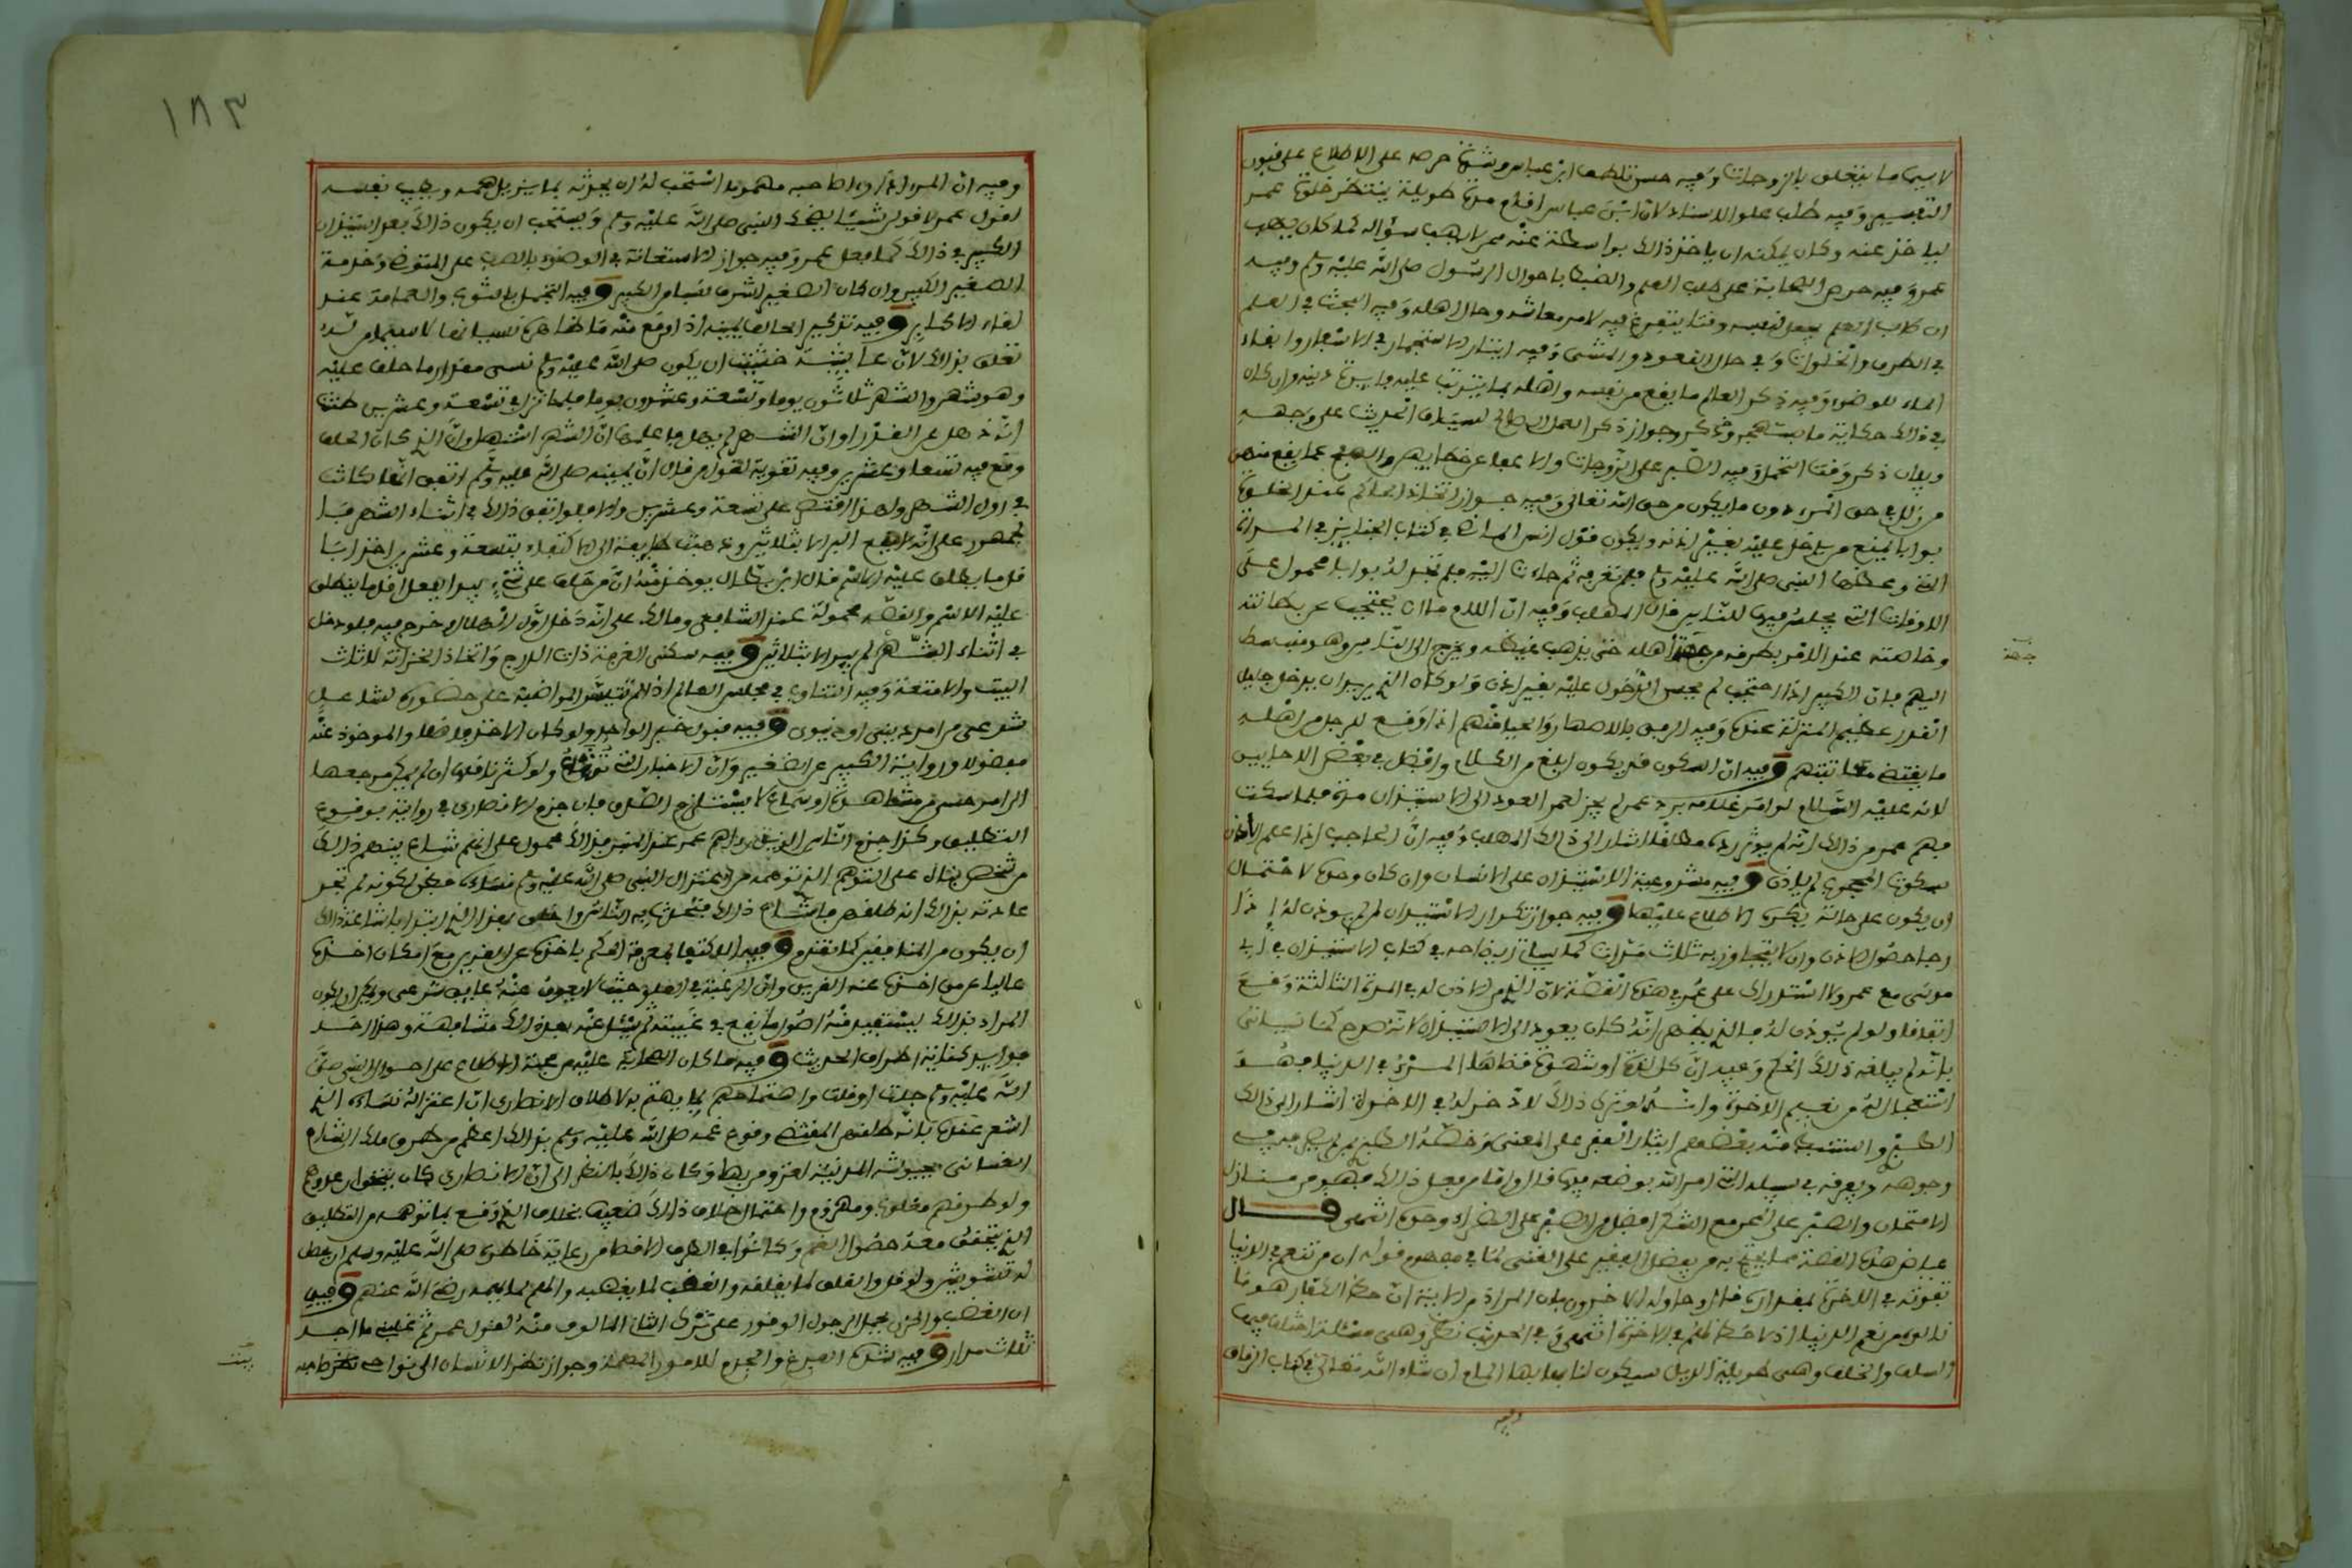 لا سيما ما يتعلق بالزوجات وفيه حسن تلطف ابن عباس وشدة حرصه على الاطلاع على فنون
التفسير وفيه طلب علو الاسناد لان ابن عباس اقام مدة طويلة ينتظر خلوة عمر
لياخذ عنه وكان يمكنه ان ياخذ ذلك بواسطة عنه ممن لا يهاب سؤاله كما كان يهاب
عمر وفيه حرص الصحابة على طلب العلم والضبط باحوال الرسول صلى الله عليه وسلم وفيه
ان طالب العلم يجعل لنفسه وقتا يتفرغ فيه لامر معاشه وحال اهله وفيه البحث في العلم
في الطرق والخلوات وفي حال القعود والمشي وفيه ايثار الاستجمار في الاسفار وابقاء
الماء للوضوء وفيه ذكر العالم ما يقع من نفسه واهله بما يترتب عليه فايدة دينية وان كان
في ذلك حكاية ما يستهجن وجواز ذكر العمل الصالح لسياق الحديث على وجهه
وبيان ذكر وقت التحمل وفيه الصبر على الزوجات والاغضاء عن خطابهن والصفح عما يقع منهن
من زلل في حق المرء دون ما يكون من حق الله تعالى وفيه جواز اتخاذ الحاكم عند الخلوة
بوابا يمنع من يدخل عليه بغير اذنه ويكون قول انس الماضي في كتاب الجنايز في المراة
التي وعظها النبي صلى الله عليه وسلم فلم تعرفه ثم جاءت اليه فلم تجد له بوابا محمول على
الاوقات التي يجلس فيها للناس قال المهلب وفيه ان للامام ان يحتجب عن بطانته
وخاصته عند الامر يطرقه من جهة اهله حتى يذهب غيظه ويخرج الى الناس وهو منبسط
اليهم فان الكبير اذا احتجب لم يحسن الدخول عليه بغير اذن ولو كان الذي يريد ان يدخل جليل
القدر عظيم المنزلة عنده وفيه الرفق بالاصهار والحياء منهم اذا وقع للرجل من اهله
ما يقتضي معاتبتهم وفيه ان السكون قد يكون ابلغ من الكلام وافضل في بعض الاحايين
لانه عليه السلام لو امر غلامه برد عمر لم يجز لعمر العود الى الاستيذان مرة فلما سكت
فهم عمر من ذلك انه لم يوثر رده مطلقا اشار الى ذلك المهلب وفيه ان الحاجب اذا علم الاذن
بسكوت المحجوب لم ياذن وفيه مشروعية الاستيذان على الانسان وان كان وحده لاحتمال
ان يكون على حالة يكره الاطلاع عليها وفيه جواز تكرار الاستيذان لمن لم يوذن له اذا
رجا حصول الاذن وان لا يتجاوز به ثلاث مرات كما سياتي ايضاحه في كتاب الاستيذان في ابي
موسى مع عمر والاستدراك على عمر في هذه القصة لان الذي من الاذن له في المرة الثالثة وقع
اتفاقا ولو لم يوذن له فالذي يظهر انه كان يعود الى الاستيذان لانه صرح كما سياتي
بانه لم يبلغه ذلك الحكم وفيه ان كل لذة او شهوة قضاها المرء في الدنيا فهو
استعجال له من نعيم الاخرة وانه لو ترك ذلك لادخر له في الاخرة اشار الى ذلك
الطبري واستنبط منه بعضهم ايثار الفقر على الغنى وخصه الطبري بمن لم يصرفه في
وجوهه ويفرقه في سبله التي امر الله بوضعه فيها قال واما من فعل ذلك فهو من منازل
الامتحان والصبر على المحن مع الشكر افضل من الصبر على الضراء وحده انتهى قال
عياض هذه القصة مما يحتج به من يفضل الفقير على الغني لما في مفهوم قوله ان من تنعم في الدنيا
يفوته في الاخرة بمقداره قال وحاوله الاخرون بان المراد من الاية ان حظ الكفار هو ما
نالوه من نعيم الدنيا اذ لا حظ لهم في الاخرة انتهى وفي الجواب نظر وهي مسئلة اختلف فيها
السلف والخلف وهي طويلة الذيل سيكون لنا بها المام ان شاء الله تعالى في كتاب الرقاق
وفيه
جهة
١٨٣
وفيه ان المرء اذا راى صاحبه مهموما استحب له ان يحدثه بما يزيل همه ويطيب نفسه
لقول عمر لاقولن شيئا يضحك النبي صلى الله عليه وسلم ويستحب ان يكون ذلك بعد استيذان
الكبير في ذلك كما فعل عمر وفيه جواز الاستعانة في الوضوء بالصب على المتوضي وخدمة
الصغير الكبير وان كان الصغير اشرف نسبا من الكبير وفيه التجمل بالثوب والعمامة عند
لقاء الاكابر وفيه تذكير الحالف بيمينه اذا وقع منه ما ظاهره نسيانها لا سيما من له
تعلق بذلك لان عايشة خشيت ان يكون صلى الله عليه وسلم نسي مقدار ما حلف عليه
وهو شهر والشهر ثلاثون يوما او تسعة وعشرون يوما فلما نزل في تسعة وعشرين ظنت
انه ذهل عن القدر او ان الشهر لم يهل فاعلمها ان الشهر استهل وان الذي كان الحلف
وقع فيه تسعا وعشرين وفيه تقوية لقول من قال ان يمينه صلى الله عليه وسلم اتفق انها كانت
في اول الشهر ولهذا اقتصر على تسعة وعشرين والا فلو اتفق ذلك في اثناء الشهر فا
لجمهور على انه لا يقع البر الا بثلاثين وذهبت طايفة الى الاكتفاء بتسعة وعشرين اخذا با
قل ما ينطلق عليه الاسم قال ابن بطال يوخذ منه ان من حلف على شيء يبر بفعل اقل ما ينطلق
عليه الاسم والقصة محمولة عند الشافعي ومالك على انه دخل اول الهلال وخرج فيه فلو دخل
في اثناء الشهر لم يبر الا بثلاثين وفيه سكنى الغرفة ذات الدرج واتخاذ الخزانة لاثاث
البيت والامتعة وفيه التناوب في مجلس العالم اذا لم تتيسر المواظبة على حضوره لشاغل
شرعي من امر ديني او دنيوي وفيه قبول خبر الواحد ولو كان الاخذ فاضلا والماخوذ عنه
مفضولا ورواية الكبير عن الصغير وان الاخبار التي تشاع ولو كثر ناقلوها ان لم يكن مرجعها
الى امر حسي من مشاهدة او سماع لا يستلزم الصدق فان جزم الانصاري في رواية بوقوع
التطليق وكذا جزم الناس الذين رآهم عمر عند المنبر بذلك محمول على انهم شاع بينهم ذلك
من شخص بناء على التوهم الذي توهمه من اعتزال النبي صلى الله عليه وسلم نساءه فظن لكونه لم تجر
عادته بذلك انه طلقهن فاشاع ذلك فتحدث به الناس واخلق بهذا الذي ابتدا باشاعة ذلك
ان يكون من المنافقين كما تقدم وفيه الاكتفاء بمعرفة الحكم باخذه عن القرين مع امكان اخذه
عاليا عمن اخذه عنه القرين وان الرغبة في العلو حيث لا يعوق عنه عايق شرعي ويمكن ان يكون
المراد بذلك ليستفيد منه اصول ما يقع في غيبته ثم يسئل عنه بعد ذلك مشافهة وهذا احد
فوايد كتابة اطراف الحديث وفيه ما كان الصحابة عليه من محبة الاطلاع على احوال النبي صلى
الله عليه وسلم جلت او قلت واهتمامهم بما يهتم به لاطلاق الانصاري ان اعتزاله نساءه الذي
اشعر عنده بانه طلقهن المقتضي وقوع غمه صلى الله عليه وسلم بذلك اعظم من طروق ملك الشام
الغساني بجيوشه المدينة لغزو من بها وكان ذلك بالنظر الى ان الانصاري كان يتحقق ان عدوهم
ولو طرقهم مغلوب ومهزوم واحتمال خلاف ذلك ضعيف بخلاف الذي وقع بما توهمه من التطليق
الذي يتحقق معه حصول الغم وكانوا في الطرف الاقصى من رعاية خاطره صلى الله عليه وسلم ان يحصل
له تشويش ولو قل والقلق لما يقلقه والغضب لما يغضبه والهم لما يهمه رضي الله عنهم وفيه
ان الغضب والحزن يحمل الرجل الوقور على ترك التاني المالوف منه لقول عمر ثم غلبني ما اجد
ثلاث مرار وفيه شدة الفزع والجزع للامور المهمة وجواز نظر الانسان الى نواحي بيت صاحبه
بيت